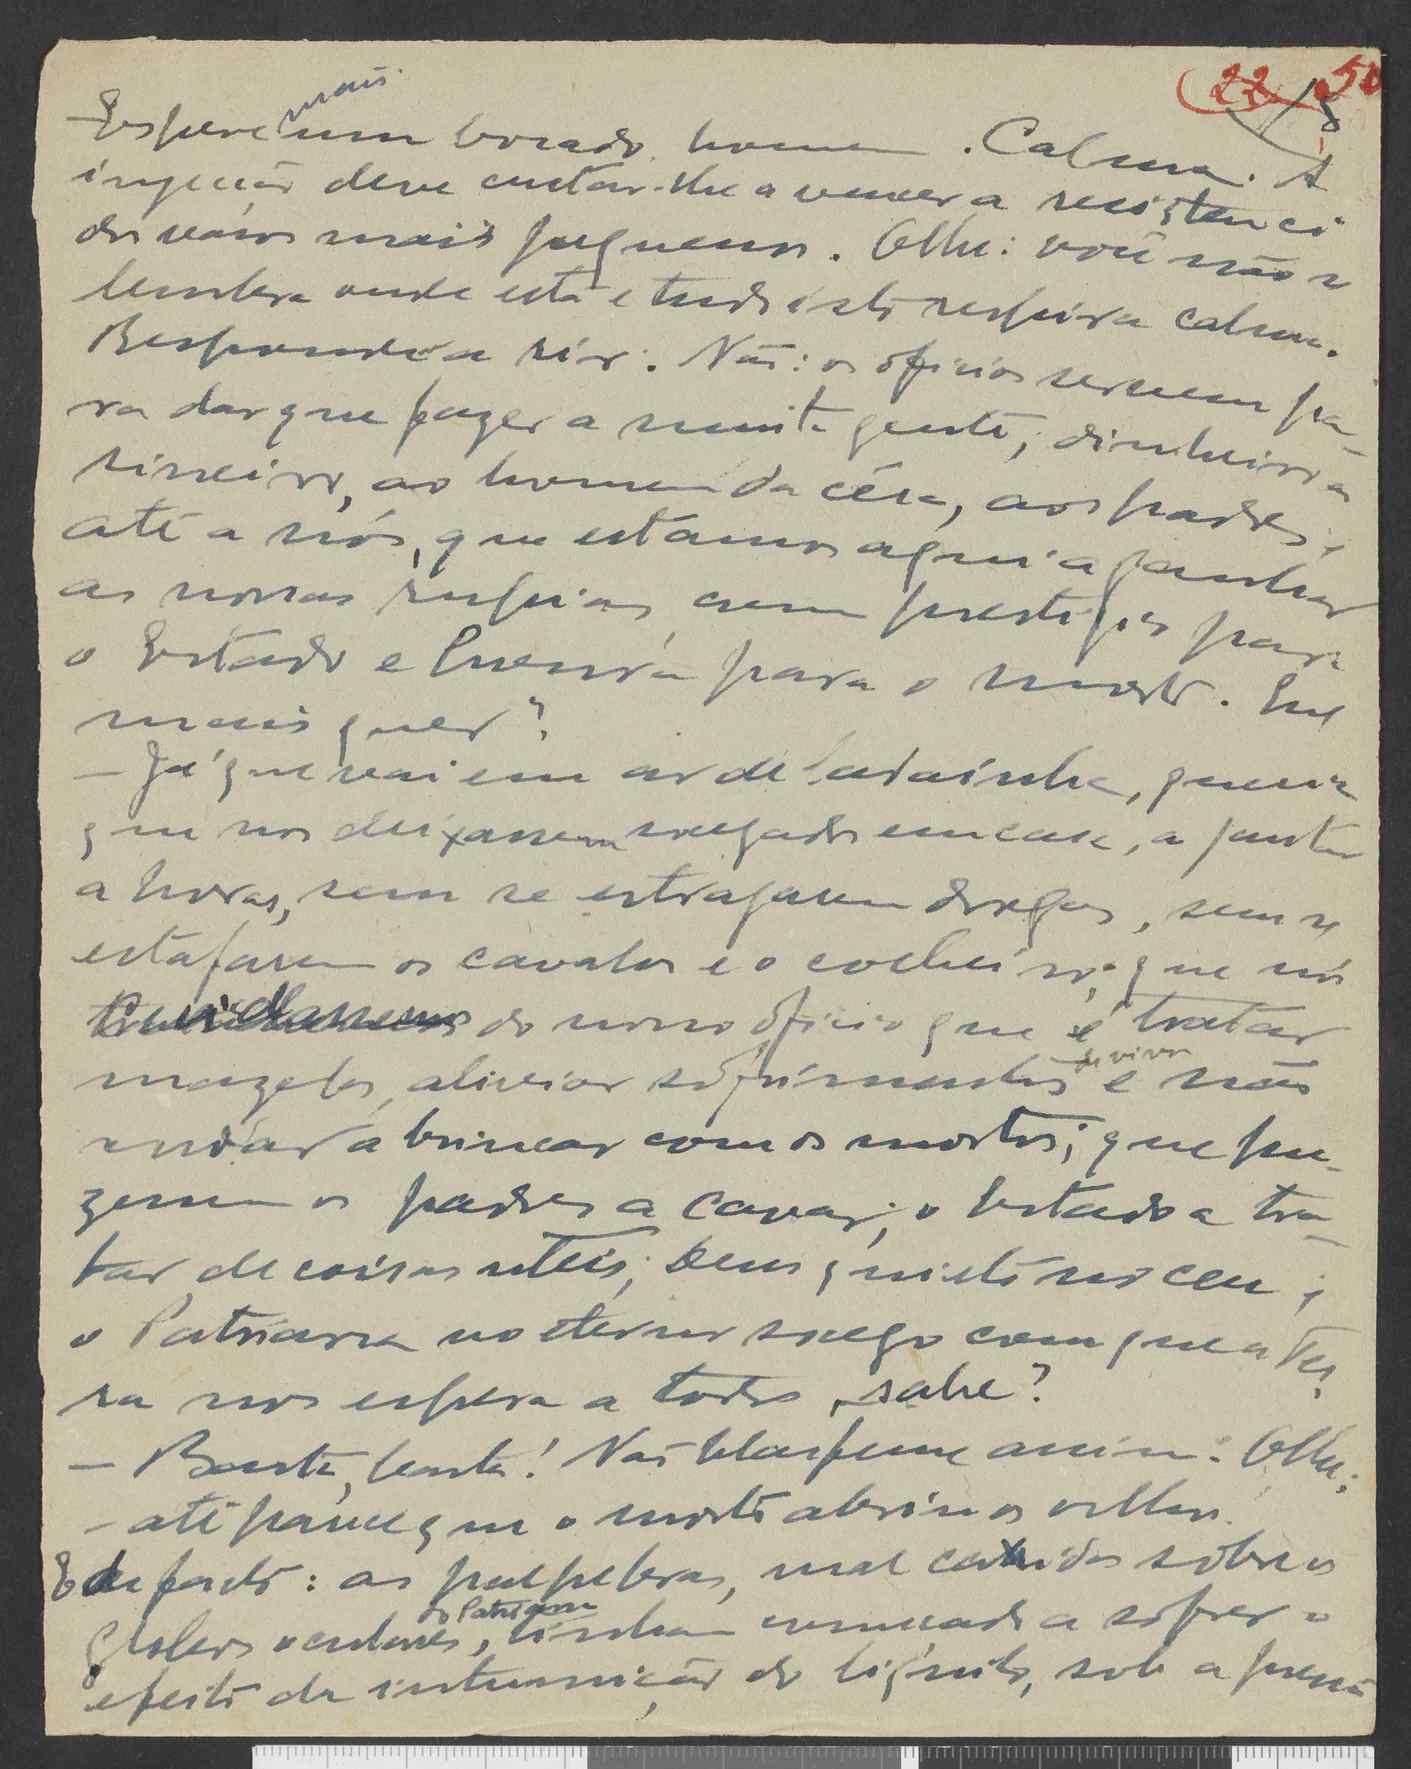 22 50
18
mais
-Espere um bocado homem. Calma. A
injecção deve custar-lhe a vencer a resistenci
dos vasos mais pequenos. Olhe: você não s
lembra onde está e tudo isto respira calma.
Respondia a rir. Não: os oficios servem pa-
ra dar que fazer a muita gente, dinheiro ao
sineiro, ao homem da cêra, aos padres,
até a nós, que estamos aqui a ganhar
as nossas rupias, com prestigio para
o Estado e honra para o morto. Que
mais quer?
- Já que vai em ar de ladainha, queria
que nos deixassem socegados em casa, a jantar
a horas, sem se estragarem drogas, sem se
estafarem os cavalos e o cocheiro; que nós
cuidassemos do nosso oficio que é tratar
de vivos
mazelas, aliviar sofrimentos e não
andar a brincar com os mortos; que pu-
zessem os padres a cavar; o Estado a tra-
tar de coisas uteis; Deus quieto no ceu,
o Patriarca no eterno socego com que a Ter-
ra nos espera a todos, sabe?
- Basta, basta! Não blasfeme assim. Olhe;
- até parece que o morto abriu os olhos.
E de facto: as palpebras, mal caidas sobre os
do Patriarca
globos oculares, tinham começado a sofrer o
efeito da intumescação do liquido, sob a pressã